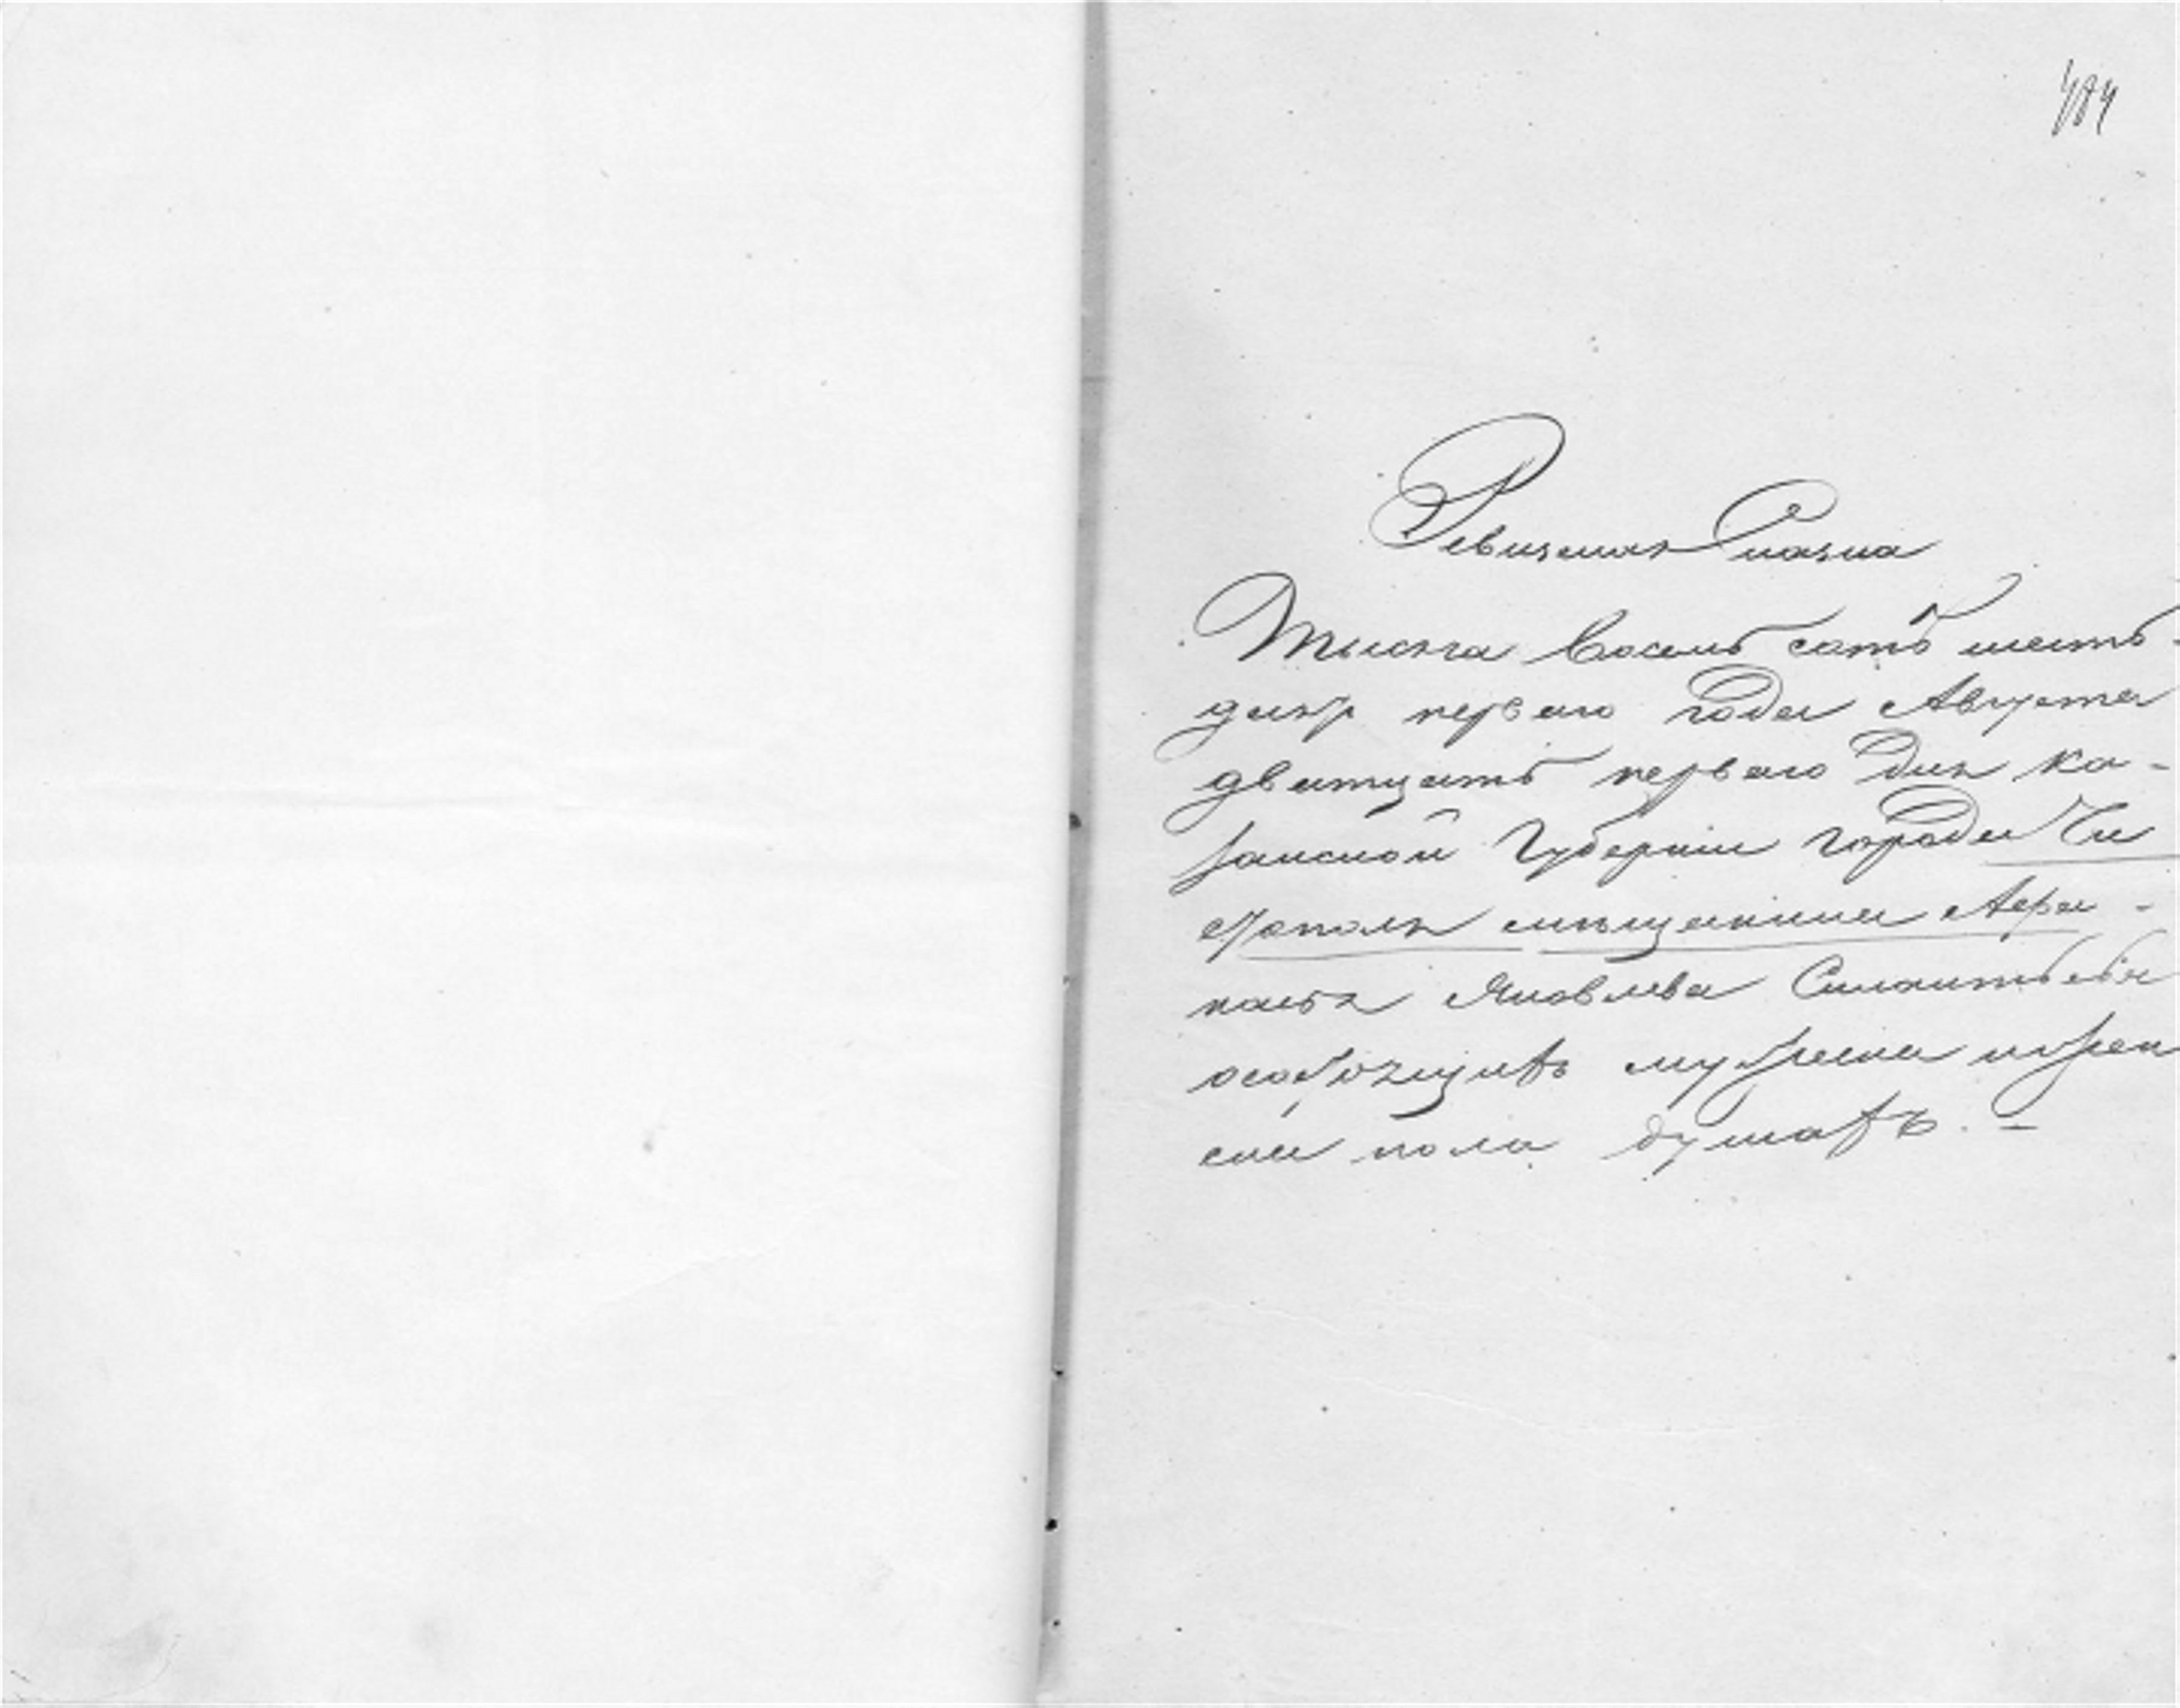 484
Ревизская Сказка
Тысяча восемь сотъ шесть-
десятъ перваго года Августа
дватцать перваго дня Ка-
занской Губернии города Чи
стополя мещанина Афа-
насья Яковлева
мужеска и жен
ска пола душахъ. –